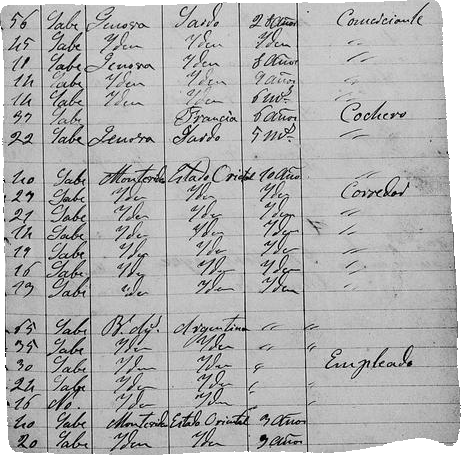 56 Sabe Genova Sardo 28 Años Comerciante
45 Sabe Yden Yden Yden "
Sabe Genova Yden 8 Años "
14 Sabe Yden Yden 9 Años "
14 Sabe Yden Yden 6 ms. "
37 Sabe Francia 6 Años Cochero
22 Sabe Genova Sardo 5 ms. "
40 Sabe Montevideo Estado Oriental 10 Años "
Sabe Yden Yden Yden Corredor
21 Sabe Yden Yden Yden "
Sabe Yden Yden Yden "
19 Sabe Yden Yden Yden "
16 Sabe Yden Yden Yden "
Sabe Yden Yden Yden "
Sabe Bs. Ays. Argentina " "
35 Sabe Yden Yden " "
30 Sabe Yden Yden " Empleado
24 Sabe Yden Yden " "
16 No Yden Yden " "
40 Sabe Montevideo Estado Oriental 3 Años
20 Sabe Yden Yden 3 Años